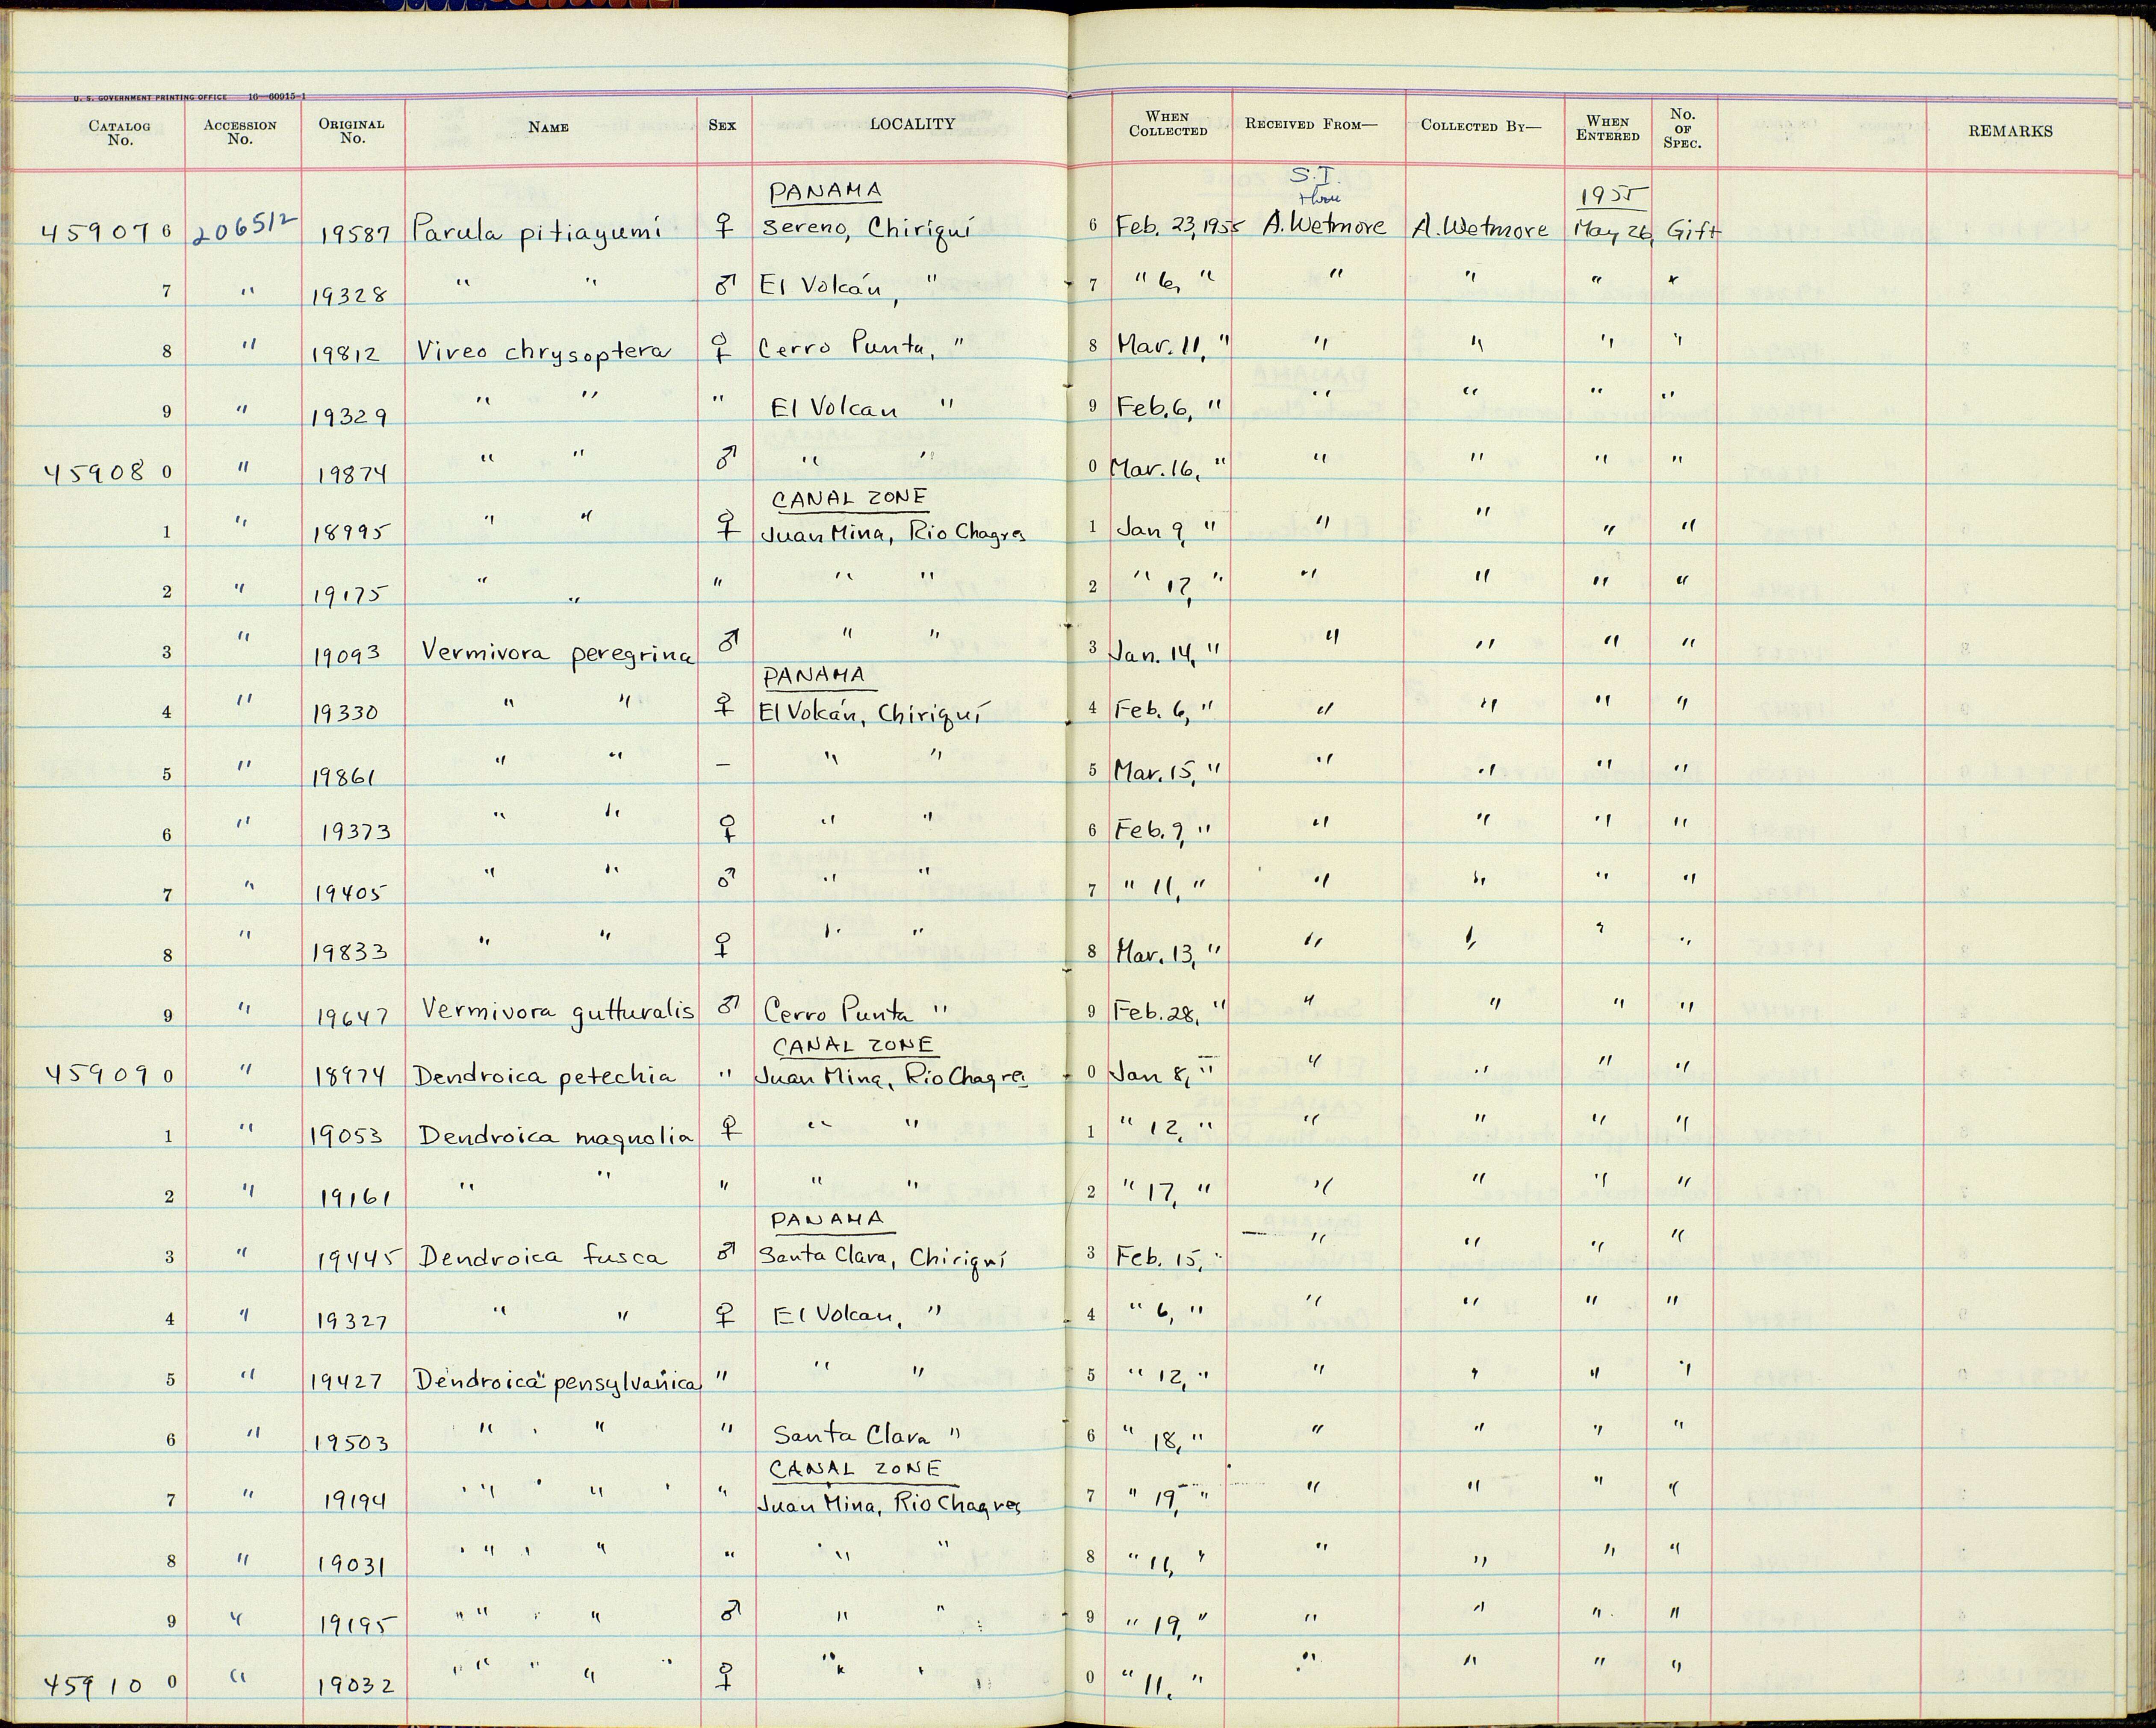 U. S. GOVERNMENT PRINTING OFFICE 16—60915-1
CATALOG No. ACCESSION No. ORIGINAL No. NAME SEX LOCALITY WHEN COLLECTED RECEIVED FROM— COLLECTED BY— WHEN ENTERED No. OF SPEC. REMARKS
PANAMA S.I. thru 1955
459076 206512 19587 Parula pitiayumi ♀ Sereno, Chiriquí 6 Feb. 23, 1955 A. Wetmore A. Wetmore May 26, Gift
7 " 19328 " " ♂ El Volcán, " 7 " 6, " " " " "
8 " 19812 Vireo chrysoptera ♀ Cerro Punta, " 8 Mar. 11, " " " " "
9 " 19329 " " " El Volcan " 9 Feb. 6, " " " " "
459080 " 19874 " " ♂ " " 0 Mar. 16, " " " " "
CANAL ZONE
1 " 18995 " " ♀ Juan Mina, Rio Chagres 1 Jan 9, " " " " "
2 " 19175 " " " " " 2 " 17, " " " " "
3 " 19093 Vermivora peregrina ♂ " " 3 Jan. 14, " " " " "
PANAMA
4 " 19330 " " ♀ El Volcán, Chiriquí 4 Feb. 6, " " " " "
5 " 19861 " " – " " 5 Mar. 15, " " " " "
6 " 19373 " " ♀ " " 6 Feb. 9, " " " " "
7 " 19405 " " ♂ " " 7 " 11, " " " " "
8 " 19833 " " ♀ " " 8 Mar. 13, " " " " "
9 " 19647 Vermivora gutturalis ♂ Cerro Punta " 9 Feb. 28, " " " " "
CANAL ZONE
459090 " 18974 Dendroica petechia " Juan Mina, Rio Chagres 0 Jan 8, " " " " "
1 " 19053 Dendroica magnolia ♀ " " 1 " 12, " " " " "
2 " 19161 " " " " " 2 " 17, " " " " "
PANAMA
3 " 19445 Dendroica fusca ♂ Santa Clara, Chiriquí 3 Feb. 15, " " " " "
4 " 19327 " " ♀ El Volcan, " 4 " 6, " " " " "
5 " 19427 Dendroica pensylvanica " " " 5 " 12, " " " " "
6 " 19503 " " " Santa Clara " 6 " 18, " " " " "
CANAL ZONE
7 " 19194 " " " Juan Mina, Rio Chagres 7 " 19, " " " " "
8 " 19031 " " " " " 8 " 11, " " " " "
9 " 19195 " " ♂ " " 9 " 19, " " " " "
459100 " 19032 " " ♀ " " 0 " 11, " " " " "